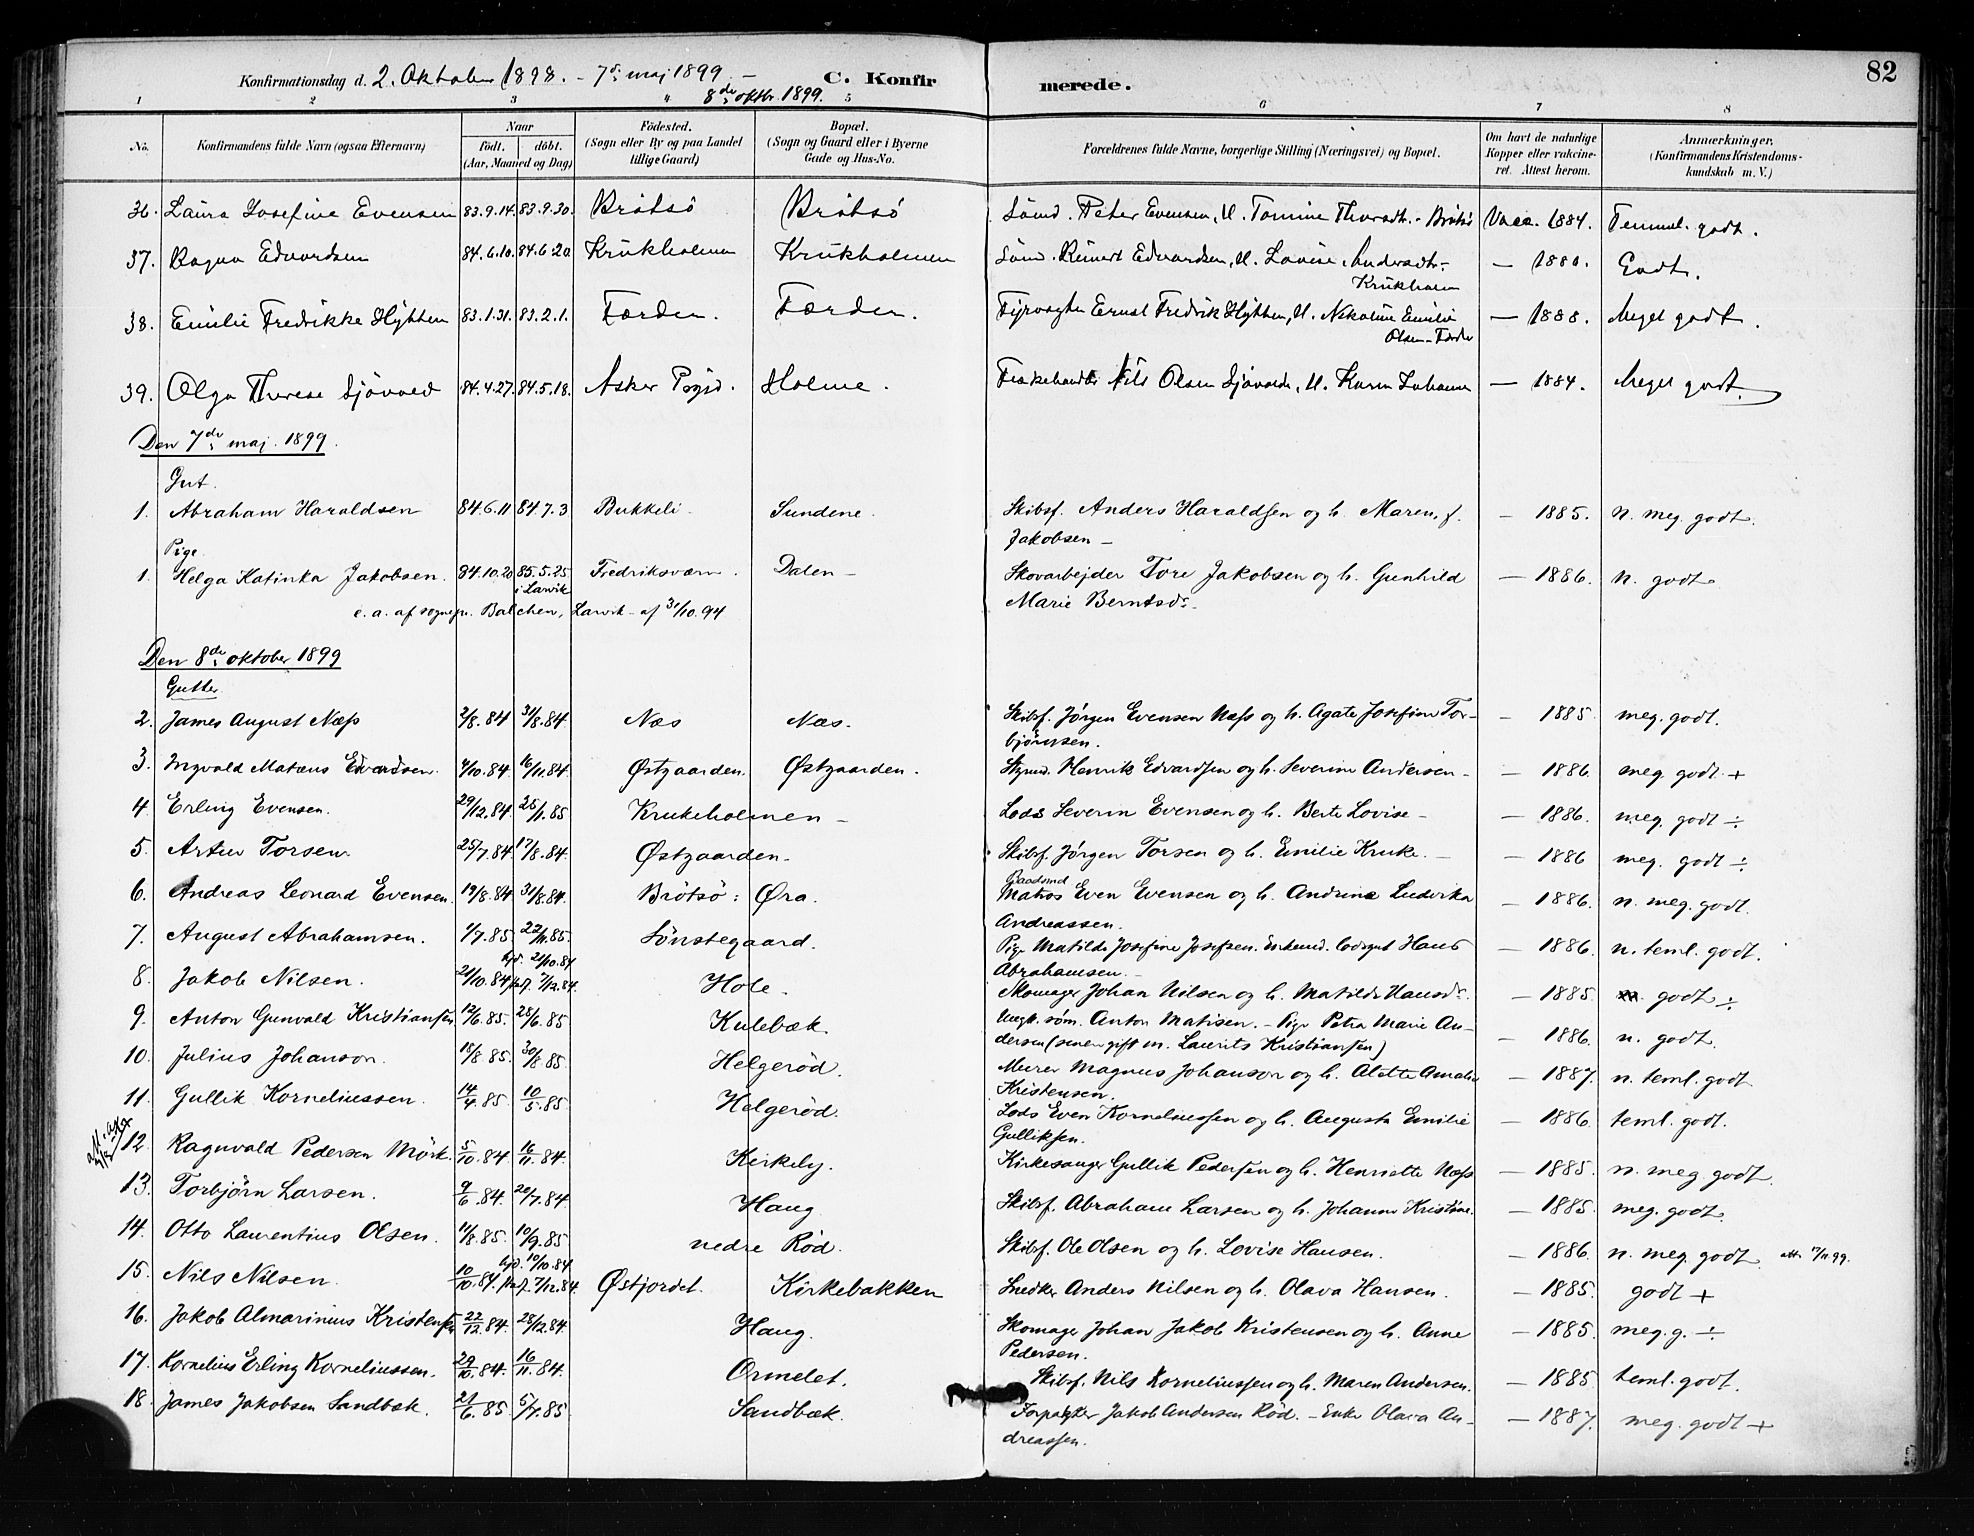 82
Konfirmationsdag d. 2. Oktober 1898. – 7de maj 1899 – C. Konfirmerede.
8de oktbr. 1899.
1 2 3 4 5 6 7 8
No. Konfirmandens fulde Navn (ogsaa Efternavn) Naar født. døbt. (Aar, Maaned og Dag) Fødested. (Sogn eller By og paa Landet tillige Gaard) Bopæl. (Sogn og Gaard eller i Byerne Gade og Hus-No. Forældrenes fulde Navne, borgerlige Stilling (Næringsvei) og Bopæl. Om havt de naturlige Kopper eller vakcineret. Attest herom. Anmærkninger. (Konfirmandens Kristendomskundskab m. V.)
36. Laura Josefine Evensen 83.9.14. 83.9.30. Brötsö Brötsö Sömd. Peter Evensen, H. Tomine Thoradtr. – Brötsö Vacc. 1884. Temmel. godt.
37. Ragna Edvardsen 84.6.10. 84.6.20. Krukholmen Krukholmen Sömd. Reinert Edvardsen, H. Lovise Andersdtr. –
Krukholm
— 1880. Godt.
38. Emilie Fredrikke Hytten 83.1.31. 83.2.1. Færder. Færder. Fyrvogter Ernst Fredrik Hytten, H. Nikoline Emilie
Olsen – Færder
— 1888. Meget godt.
39. Olga Therese Sjövold 84.4.27. 84.5.18. Asker Pgjd. Holme. Fiskehandl. Nils Olsen Sjövold, H. Karen Johanne — 1884. Meget godt.
Den 7de maj. 1899.
Gut.
1. Abraham Haraldsen 84.6.11 84.7.3 Bukkeli. Sundene. Skibsf. Anders Haraldsen og h. Maren, f.
Jakobsen –
– 1885. n. meg. godt.
Pige.
1. Helga Katinka Jakobsen. 84.10.20 85.5.25 Fredriksværn. Dalen – Skovarbejder Tore Jakobsen og h. Gunhild
i Larvik
Marie Berntsdr. –
— 1886. n. godt.
e. a. af sognepr. Balchen, Larvik – af 31/10.94
Den 8de oktober 1899
Gutter.
2. James August Næss 2/8.84 31/8.84. Næs Næs. Skibsf. Jørgen Evensen Næss og h. Agate Josefine Tor-
bjørnsen.
– 1885. meg. godt.
3. Ingvald Matæus Edvardsen. 4/10.84. 16/11.84. Østgaarden. Østgaarden. Styrmd. Henrik Edvardsen og h. Severine Andersen – — 1886. meg. godt +
4. Erling Evensen. 29/12.84. 25/1.85 Krukeholmen – Lods Severin Evensen og h. Berte Lovise – — 1886. meg. godt ÷
5. Artur Torsen 25/7.84. 17/8.84. Østgaarden – Skibsf. Jørgen Torsen og h. Emilie Kruke. – – 1886 meg. godt ÷
6. Andreas Leonard Evensen. 19/8.84 31/8.84. Brötsö: Øra. Matros Even Evensen og h. Andrine Ludvika
Baadsmd
Andreassen.
– 1886. n. meg. godt.
7. August Abrahamsen. 1/7.85. 22/11.85. Sönstegaard. Pige Matilde Josefine Josefsen. Enkemd. Lodsgut Hans
Abrahamsen. –
– 1886. n. teml. godt.
8. Jakob Nilsen. 21/10.84 hjd. 21/10.84 pub. 7/12.84. Hole. Skomager Johan Nilsen og h. Matilde Hansdr. – 1885. godt ÷
9. Anton Gunvald Kristiansen 12/6.85. 28/6.85 Kulebæk. Ungk. söm. Anton Matisen. – Pige Petra Marie An-
dersen (senere gift m. Laurits Kristiansen)
— 1886. n. godt.
10. Julius Johanson. 15/8.85. 30/8.85 Helgeröd. Murer Magnus Johanson og h. Alette Amalie
Kristensen.
– 1887. n. teml. godt
11. Gullik Korneliussen. 14/4.85 10/5.85 Helgeröd. Lods Even Korneliussen og h. Augusta Emilie
Gulliksen.
— 1886. teml. godt.
12. Ragnvald Pedersen Mörk. 5/10.84. 16/11.84. Kirkeby. Kirkesanger Gullik Pedersen og h. Henriette Næss – 1885. n. meg. godt.
13. Torbjörn Larsen. 9/6.84. 20/7.84. Haug Skibsf. Abraham Larsen og h. Johanne Kristine. – 1885. meg. godt.
14. Otto Laurentius Olsen. 11/8.85. 10/9.85 nedre Röd. Skibsf. Ole Olsen og h. Lovise Hansen. – 1886. n. meg. godt. att. 17/11.99.
15. Nils Nilsen. 10/10.84. hjd. 10/10.84 pub. 7/12.84. Østjordet. Kirkebakken Snedker Anders Nilsen og h. Olava Hansen. – 1885. godt +
16. Jakob Almarinius Kristensen 22/12.84. 28/12.84. Haug. Skomager Johan Jakob Kristensen og h. Anne
Pedersen.
– 1885. meg. g. ÷
17. Kornelius Erling Korneliussen. 29/10.84. 16/11.84. Ormelet. Skibsf. Nils Korneliussen og h. Maren Andersen. – 1885. teml. godt.
18. James Jakobsen Sandbæk. 21/6.85 5/7.85 Sandbæk. Forpagter Jakob Andersen Röd. – Enke Olava An-
dreassen.
— 1887. meg. godt +